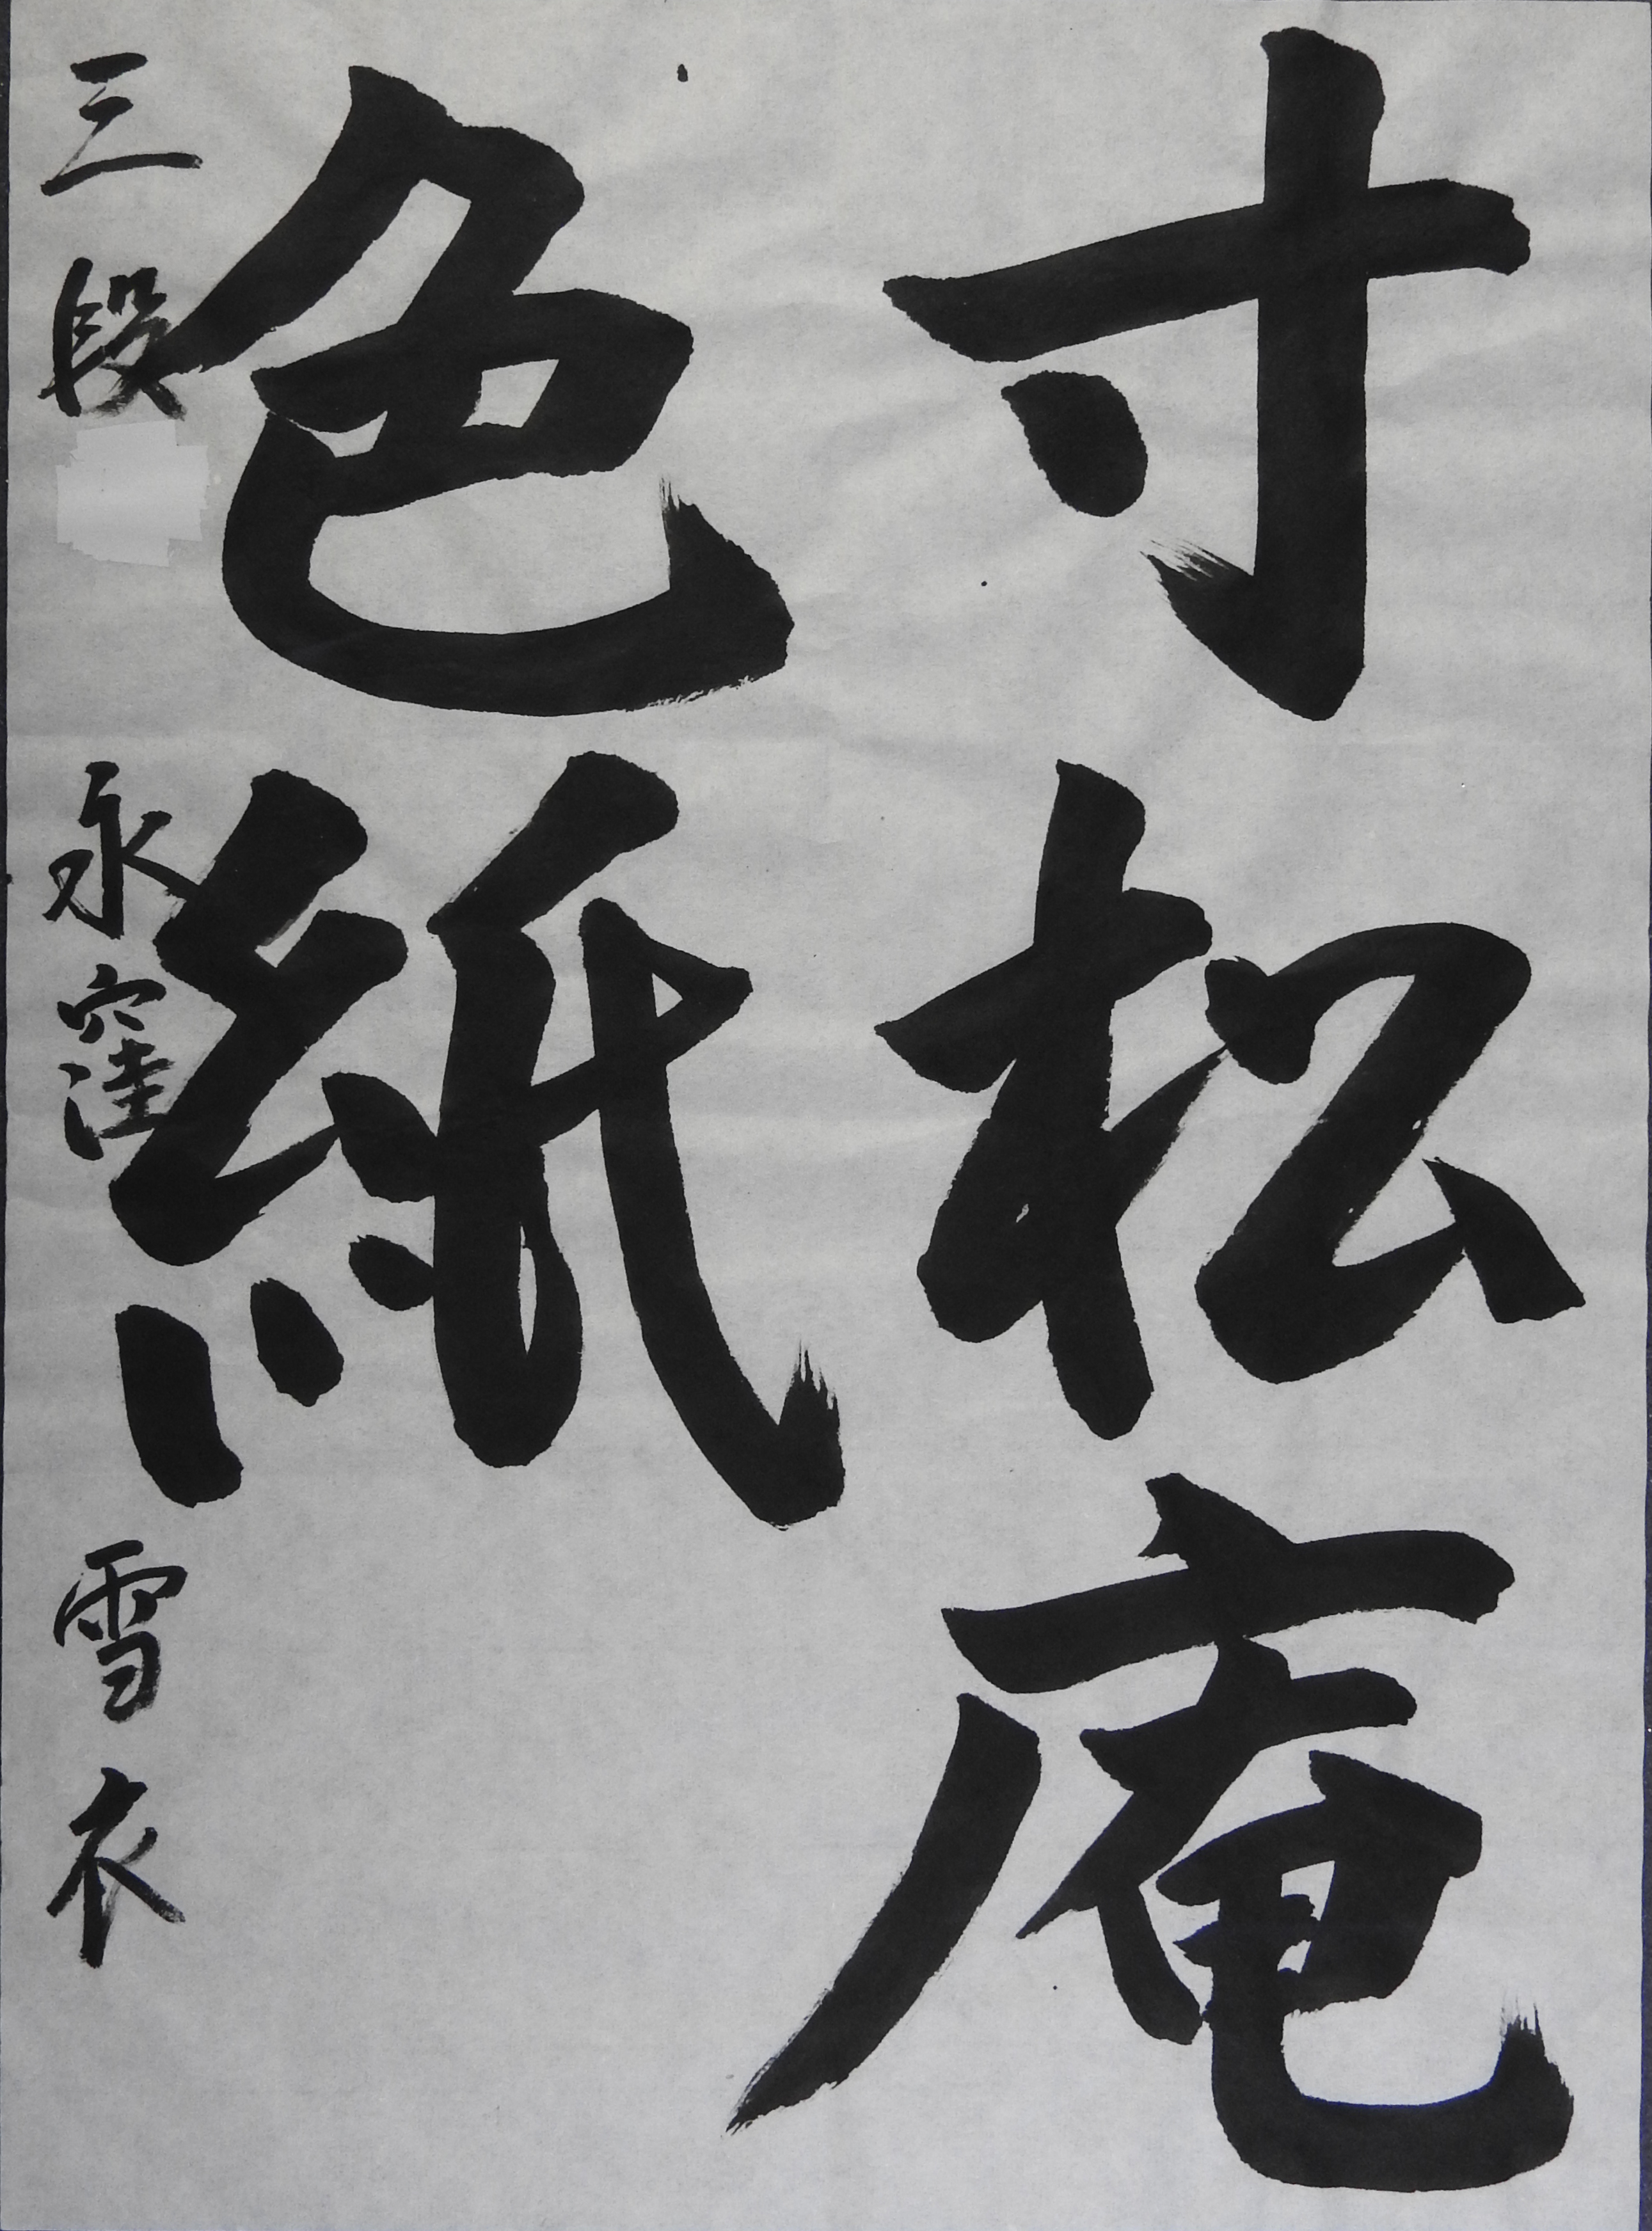 寸松庵
色紙
三段 永窪雪衣